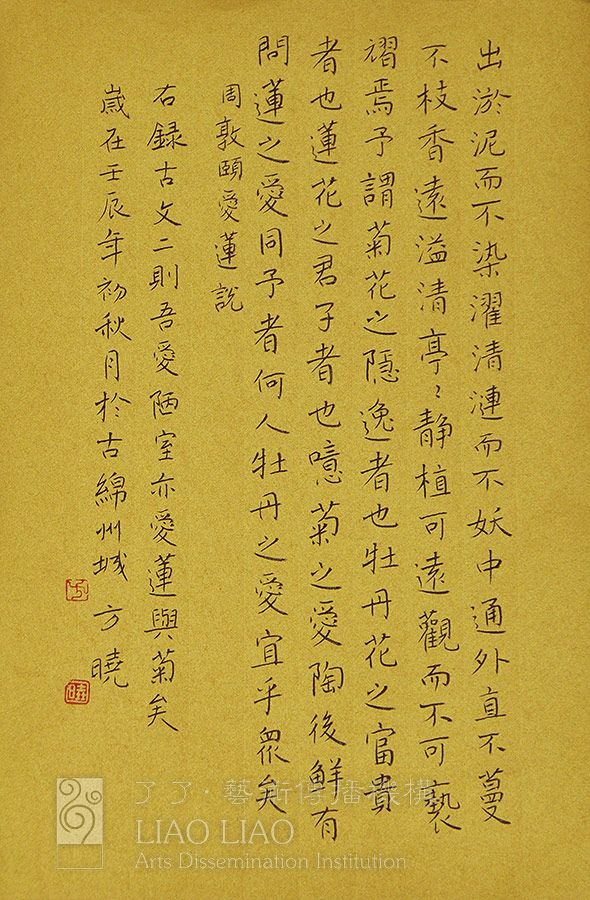 出淤泥而不染濯清漣而不妖中通外直不蔓
不枝香遠溢清亭〻靜植可遠觀而不可褻
褶焉予謂菊花之隱逸者也牡丹花之富貴
者也蓮花之君子者也噫菊之愛陶後鮮有
問蓮之愛同予者何人牡丹之愛宜乎眾矣
周敦頤愛蓮說
右錄古文二則吾愛陋室亦愛蓮與菊矣
歲在壬辰年初秋月於古綿州城 方曉
了了·藝術傳播機構
LIAO LIAO
Arts Dissemination Institution